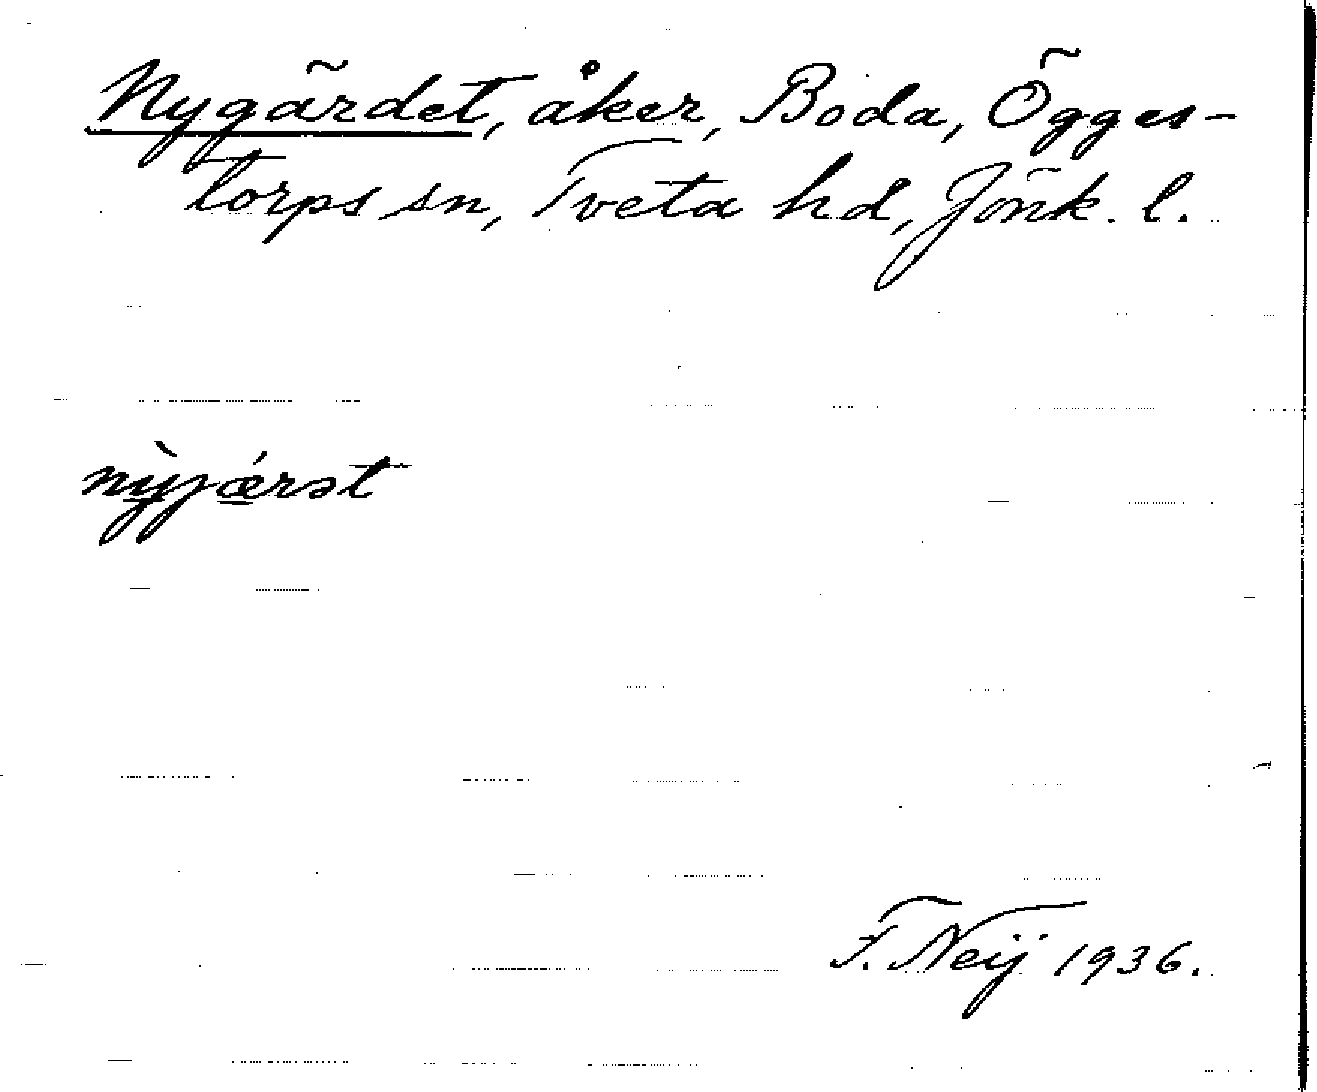 Nygärdet, åker, Boda, Ögges-
torps sn, Tveta hd, Jönk. l.
nỳjǽrət
F. Neij 1936.